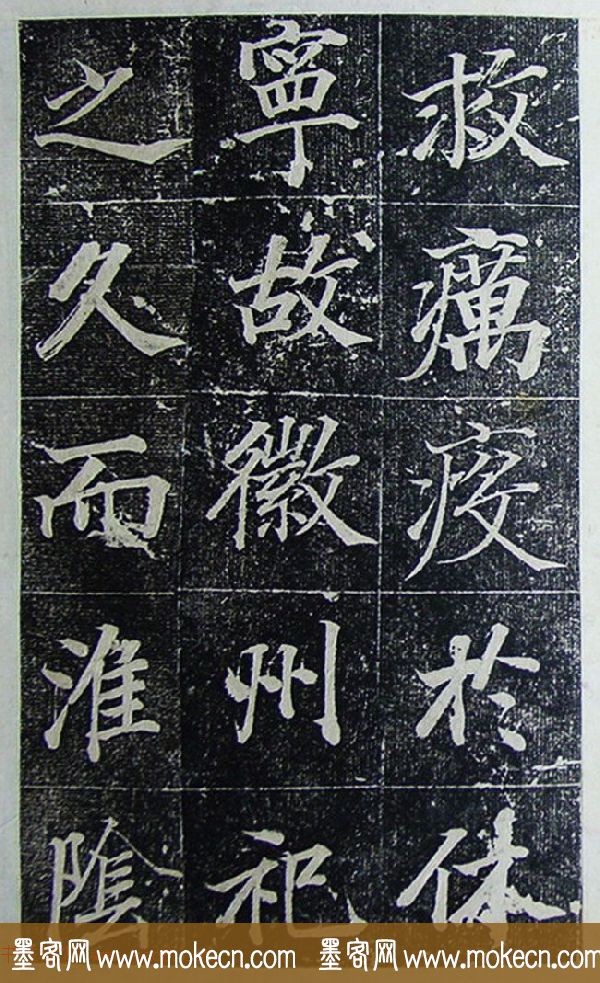 救癘疫於休
寧故徽州祀
之久而淮陰
墨客网 www.mokecn.com 墨客网 www.mokecn.com